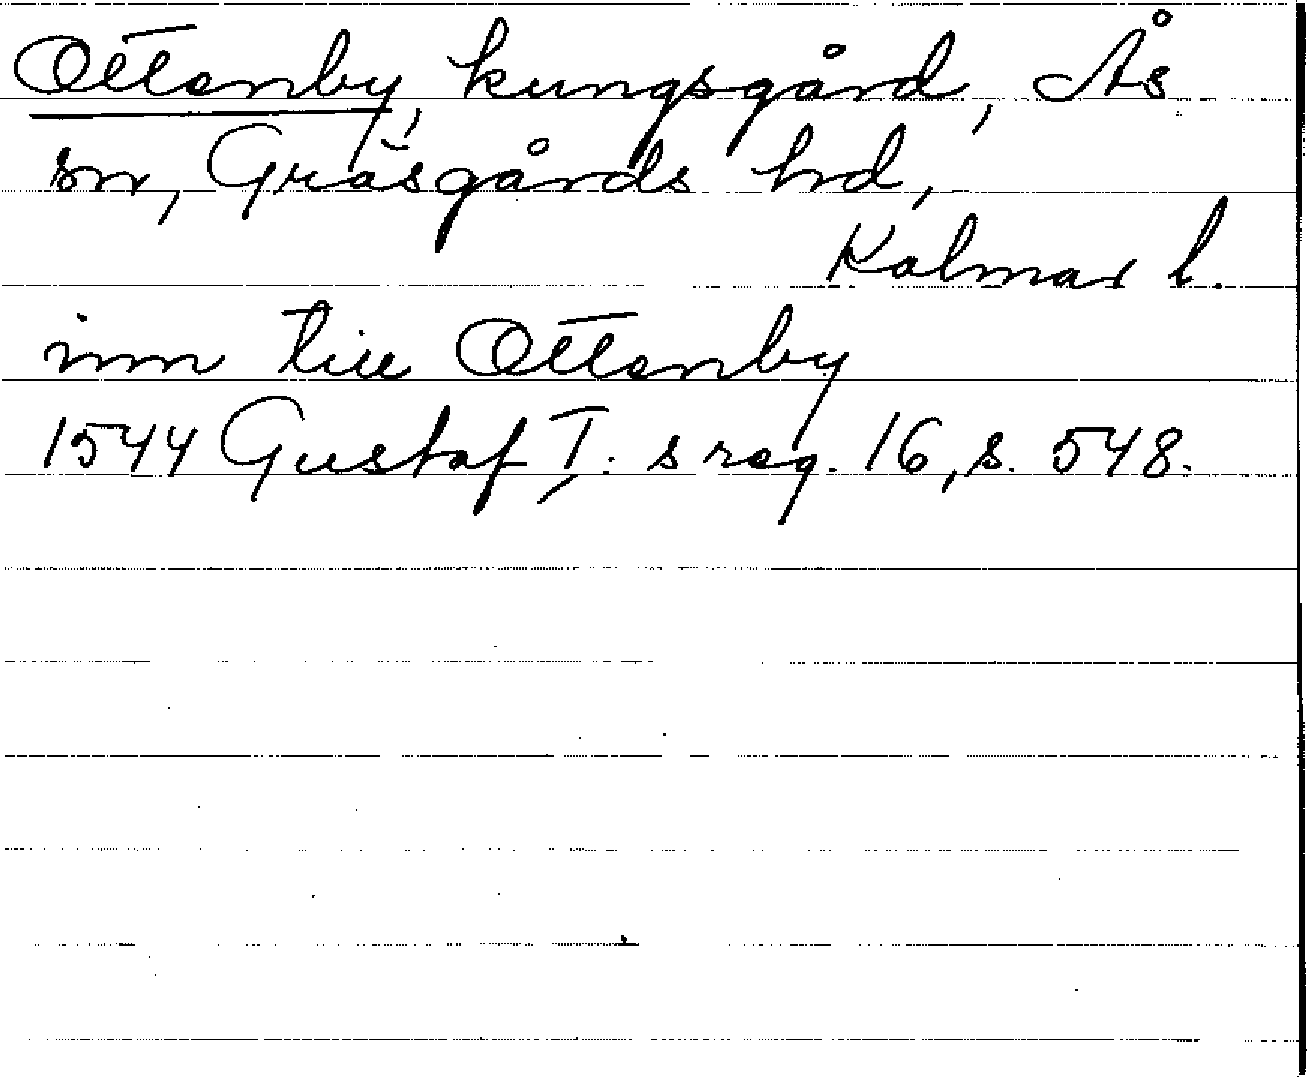 Ottenby, kungsgård, Ås
sn, Gräsgårds hd,
Kalmar l.
inn till Ottenby
1544 Gustaf I:s reg. 16, s. 548.